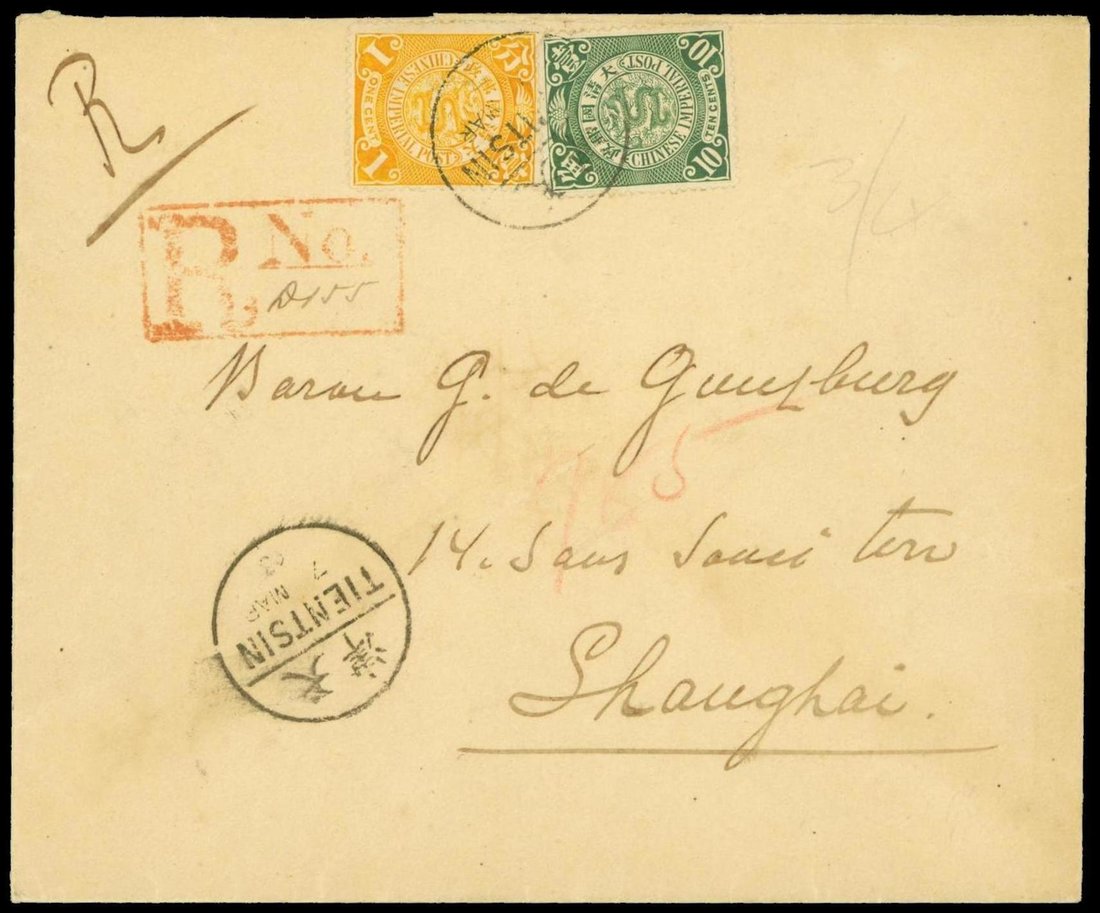 R
1 分
CHINESE IMPERIAL POST
ONE CENT
1
10
大清國郵政
CHINESE IMPERIAL POST
TEN CENTS
10
MAR
R No.
Baron G. de Gunzburg
14. Sans Souci terr
Shanghai.
TIENTSIN
7 MAR
天津